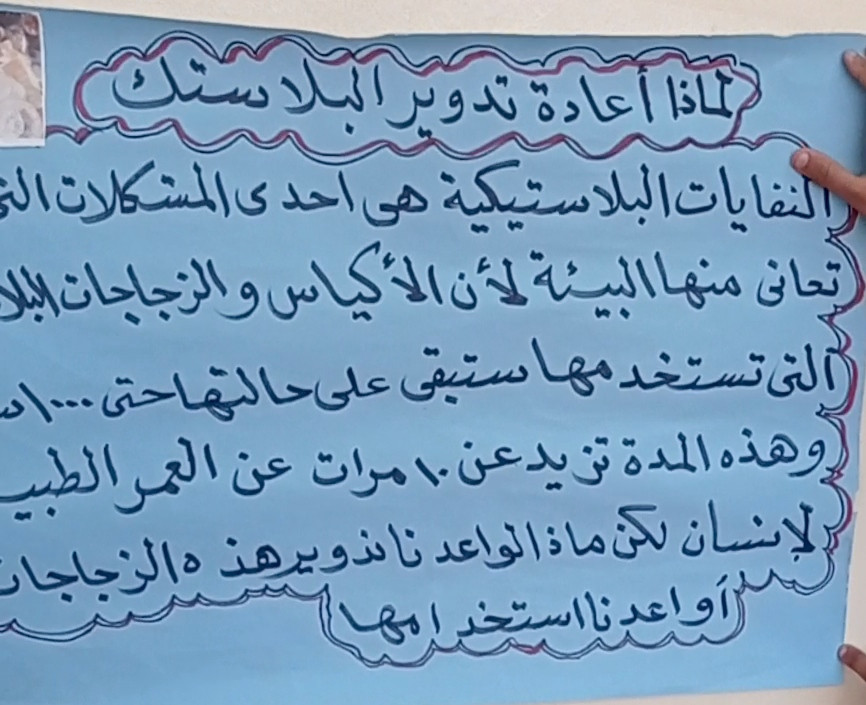 لماذا أعادة تدوير البلاستك
النفايات البلاستيكية هى احدى المشكلات
تعانى منها البيئة لأن الأكياس والزجاجات
التى تستخدمها ستبقى على حالتها حتى ١٠٠٠
وهذه المدة تزيد عن ١٠ مرات عن العمر
لإنسان لكن ماذا لواعدنا تدوير هذه
أواعدنا استخدامها